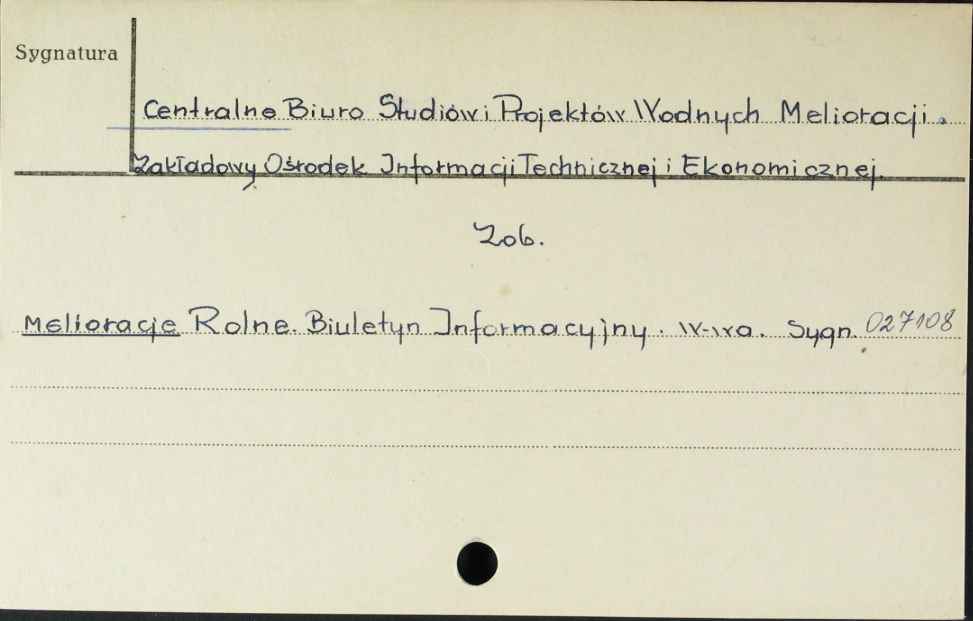 Sygnatura
Centralne Biuro Studiów i Projektów Wodnych Melioracji.
Zakładowy Ośrodek Informacji Technicznej i Ekonomicznej.
Zob.
Melioracje Rolne. Biuletyn Informacyjny. W-wa. Sygn. 027108